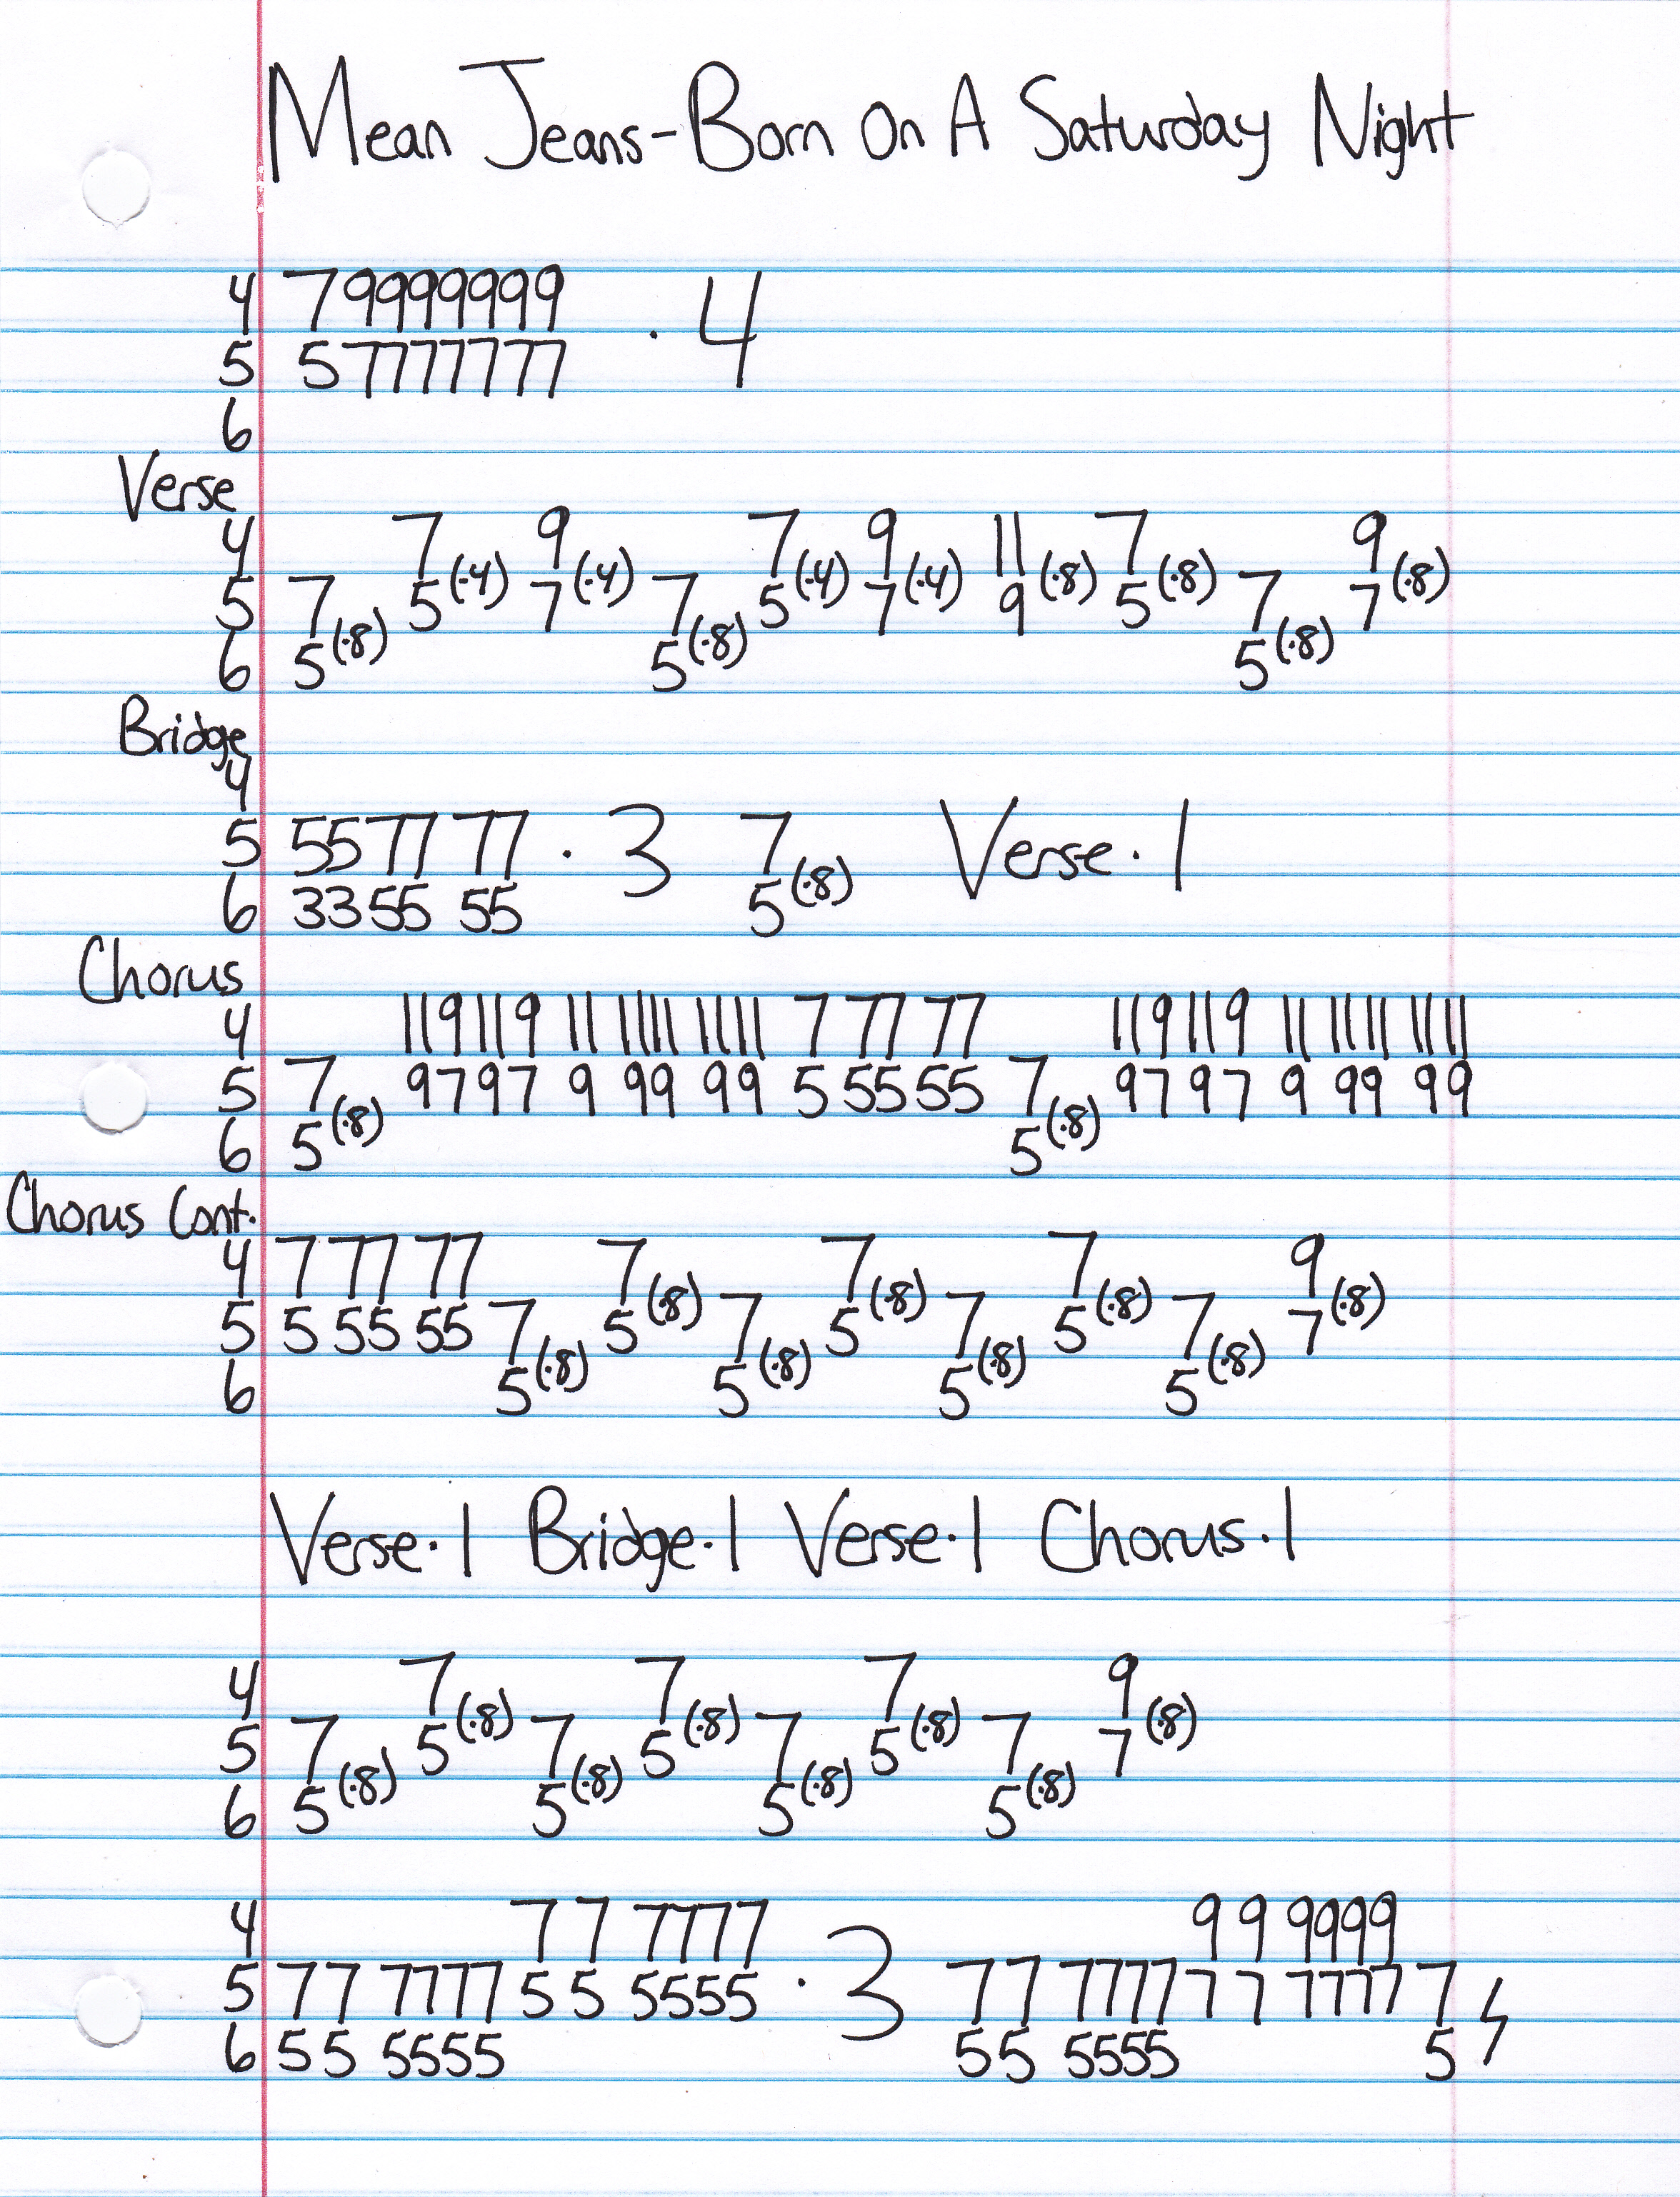 Mean Jeans-Born On A Saturday Night
4 7 9999999 · 4
5 5 7777777
6
Verse
4 7 (·4) 9 (·4) 7 (·4) 9 (·4) 11 (·8) 7 (·8) 9 (·8)
5 7 (·8) 5 7 7 (·8) 5 7 9 5 7 (·8) 7
6 5 5 5
Bridge
4
5 5577 77 · 3 7 (·8) Verse · 1
6 3355 55 5
Chorus
4 119119 11 1111 1111 7 77 77 119119 11 1111 1111
5 7 (·8) 9797 9 99 99 5 55 55 7 (·8) 9797 9 99 99
6 5 5
Chorus Cont.
4 7 77 77 7 (·8) 7 (·8) 7 (·8) 9 (·8)
5 5 55 55 7 (·8) 5 7 (·8) 5 7 (·8) 5 7 (·8) 7
6 5 5 5 5
Verse·1 Bridge·1 Verse·1 Chorus·1
4 7 (·8) 7 (·8) 7 (·8) 9 (·8)
5 7 (·8) 5 7 (·8) 5 7 (·8) 5 7 (·8) 7
6 5 5 5 5
4 7 7 7777 · 3 9 9 9999
5 77 7777 5 5 5555 77 7777 7 7 7777 7
6 55 5555 55 5555 5